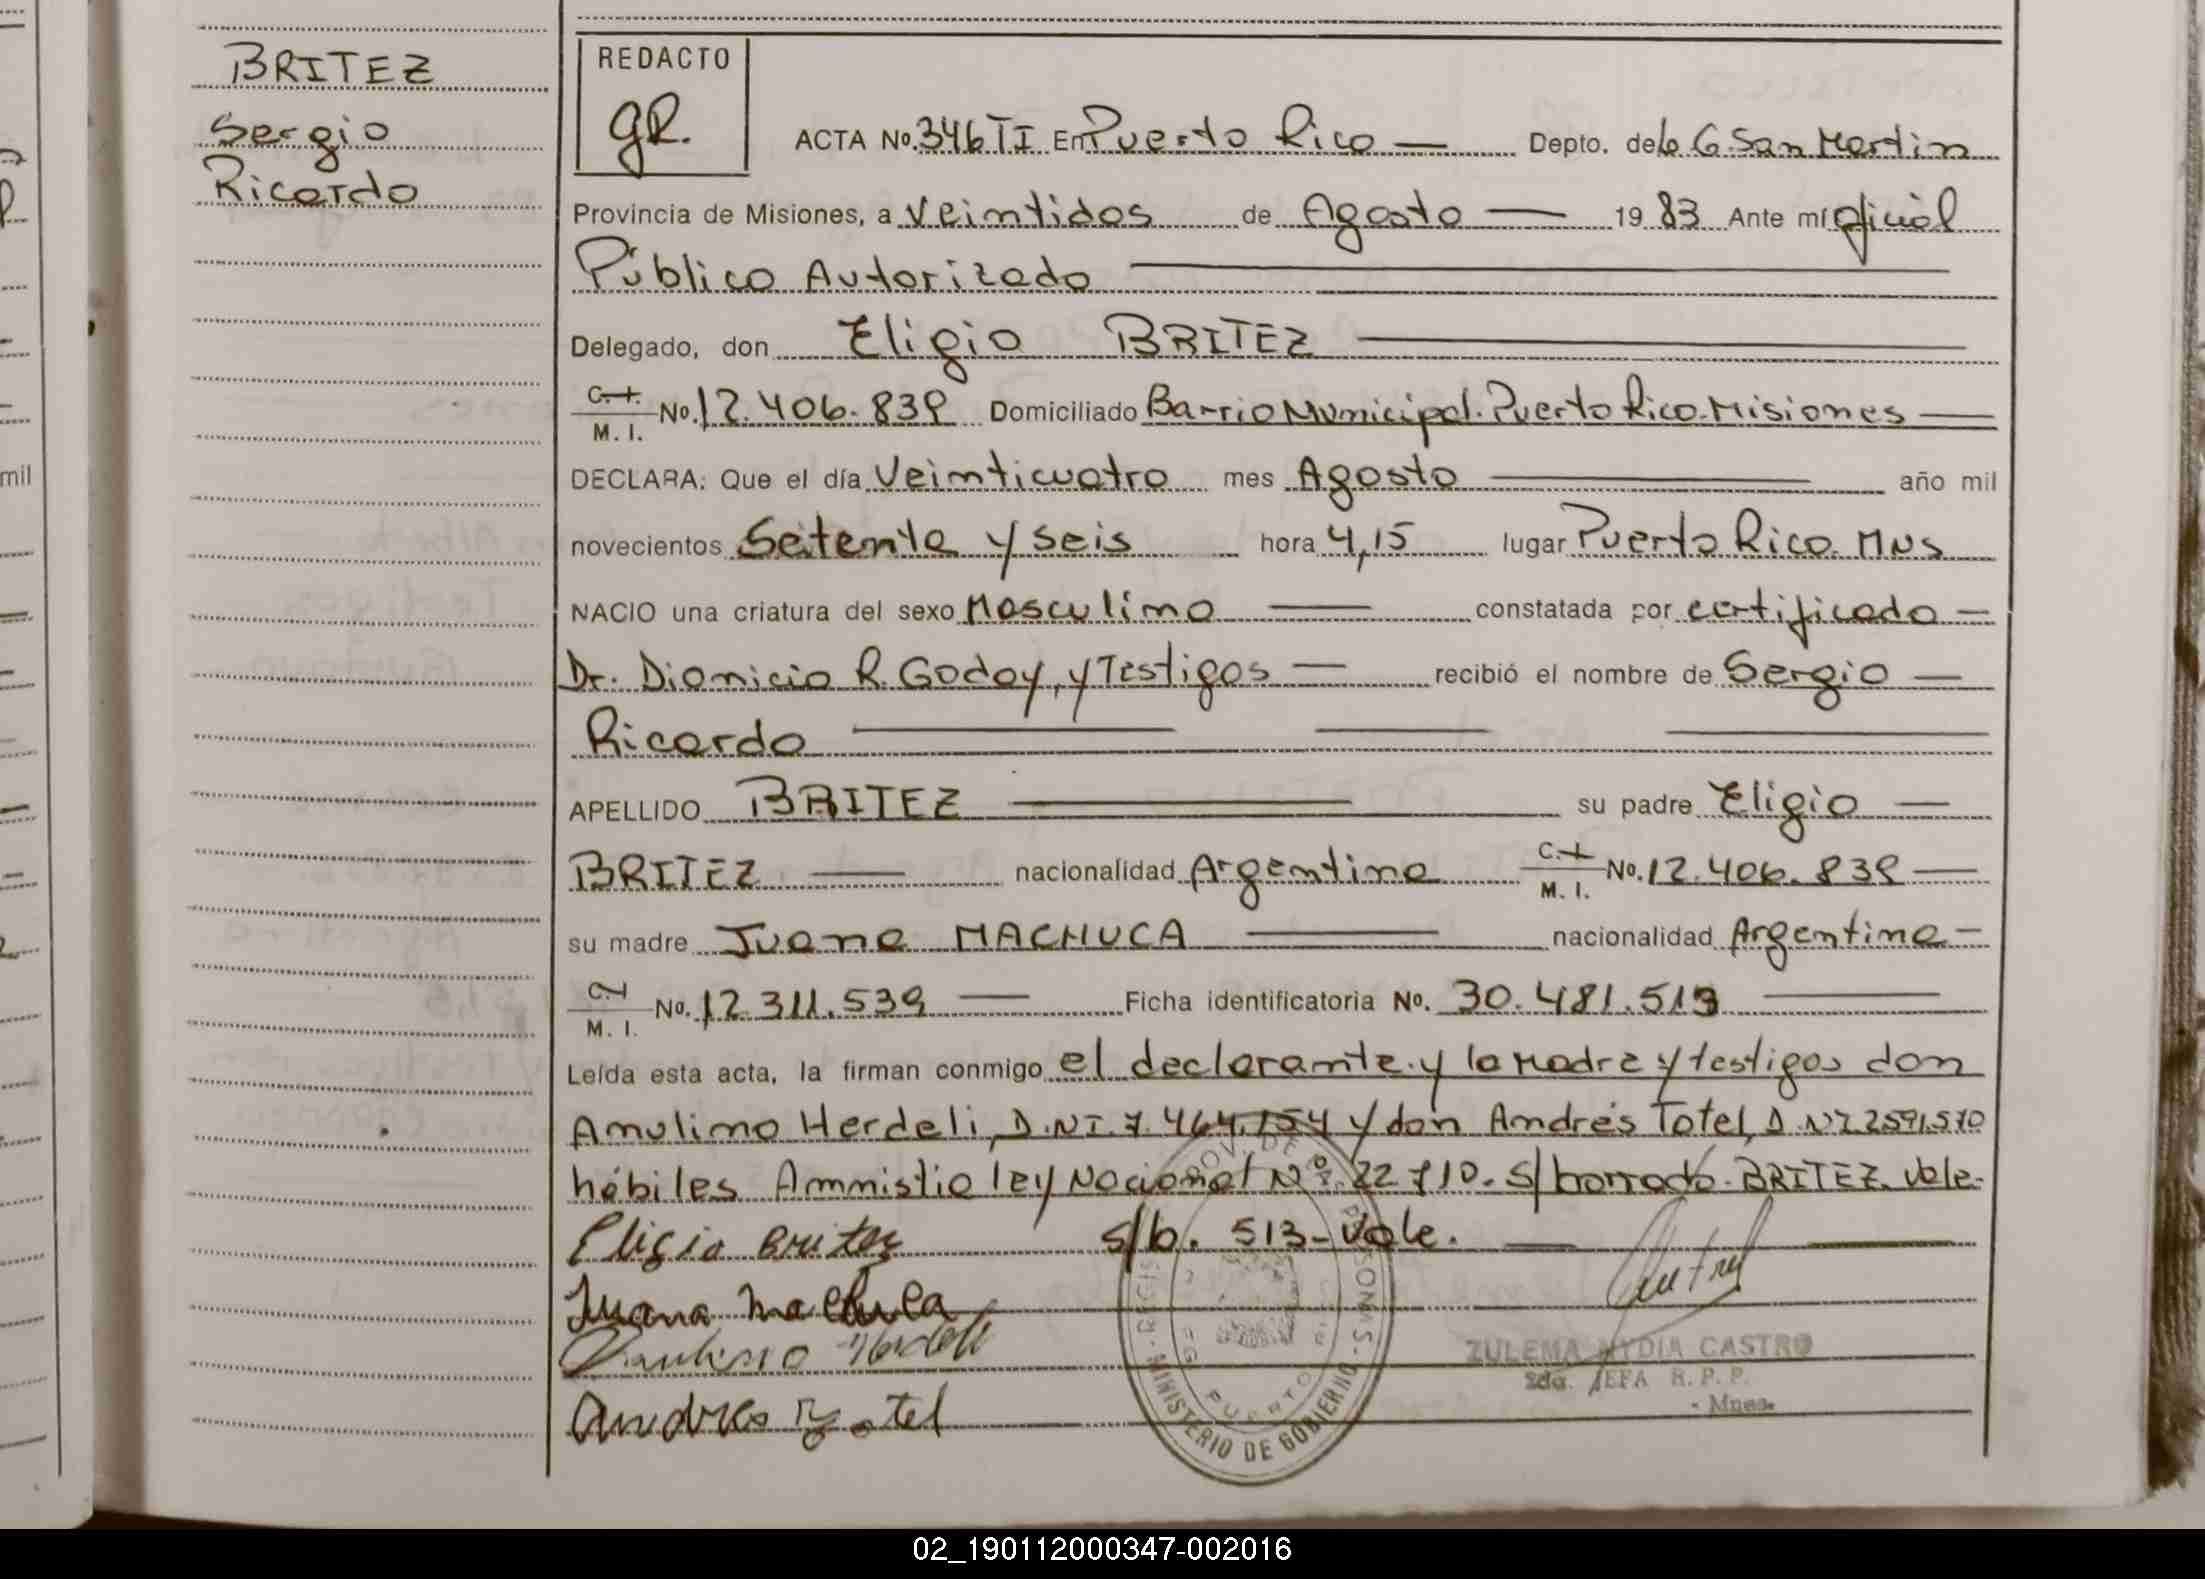 BRITEZ
Sergio
Ricardo
REDACTO
gR.
ACTA No. 346 TI En Puerto Rico — Depto. de Lb G. San Martin
Provincia de Misiones, a veintidos de Agosto — 19 83 Ante mí oficial
Público Autorizado
Delegado, don Eligio BRITEZ
C.I. M. I. No. 12.406.839 Domiciliado Barrio Municipal. Puerto Rico. Misiones —
DECLARA: Que el día Veinticuatro mes Agosto — año mil
novecientos Setenta y seis hora 4,15 lugar Puerto Rico. Mns
NACIO una criatura del sexo Masculino — constatada por certificado —
Dr. Dionicio R. Godoy, y Testigos — recibió el nombre de Sergio —
Ricardo
APELLIDO BRITEZ — su padre Eligio —
BRITEZ — nacionalidad Argentina C.I. M. I. No. 12.406.839 —
su madre Juana MACHUCA — nacionalidad Argentina —
C.I. M. I. No. 12.311.539 — Ficha identificatoria No. 30.481.513 —
Leída esta acta, la firman conmigo el declarante y la Madre y testigos don
Anulino Herdeli, D.N.I. 7.464.154 y don Andrés Totel, D.N.I. 2591.570
hábiles Amnistia ley Nacional Nº 22 710. S/borrado. BRITEZ. Vale.
Eligio Britez s/b. 513 - Vale.
Juana Machuca
Andres
MINISTERIO DE GOBIERNO
PUERTO
ZULEMA NYDIA CASTRO
2da. JEFA R. P. P.
- Mnes.
mil
02_190112000347-002016